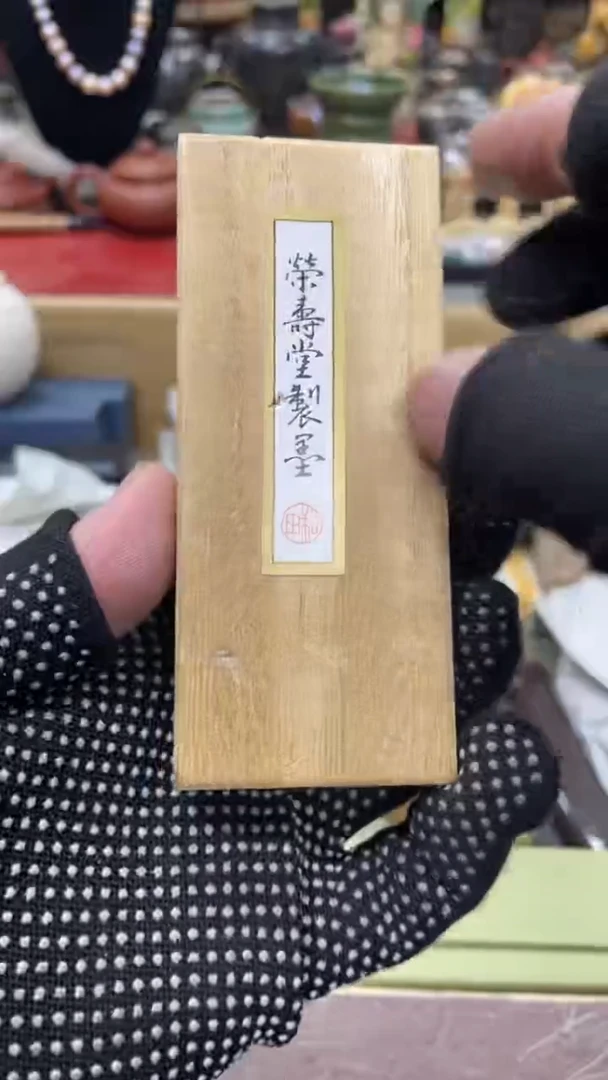 榮壽堂製墨